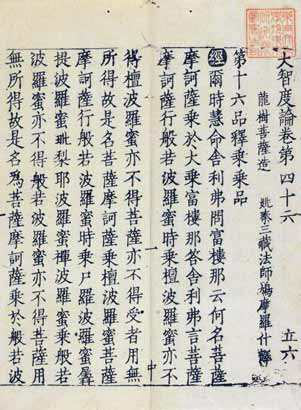 大智度論卷第四十六 立六
龍樹菩薩造 姚秦三藏法師鳩摩羅什譯
第十六品釋乘乘品
經爾時慧命舍利弗問富樓那云何名菩薩
摩訶薩乘於大乘富樓那答舍利弗言菩薩
摩訶薩行般若波羅蜜時乘檀波羅蜜亦不
得檀波羅蜜亦不得菩薩亦不得受者用無
所得故是名菩薩摩訶薩乘檀波羅蜜菩薩
摩訶薩行般若波羅蜜時乘尸羅波羅蜜羼
提波羅蜜毗梨耶波羅蜜禪波羅蜜乘般若
波羅蜜亦不得般若波羅蜜亦不得菩薩用
無所得故是名為菩薩摩訶薩乘於般若波
中